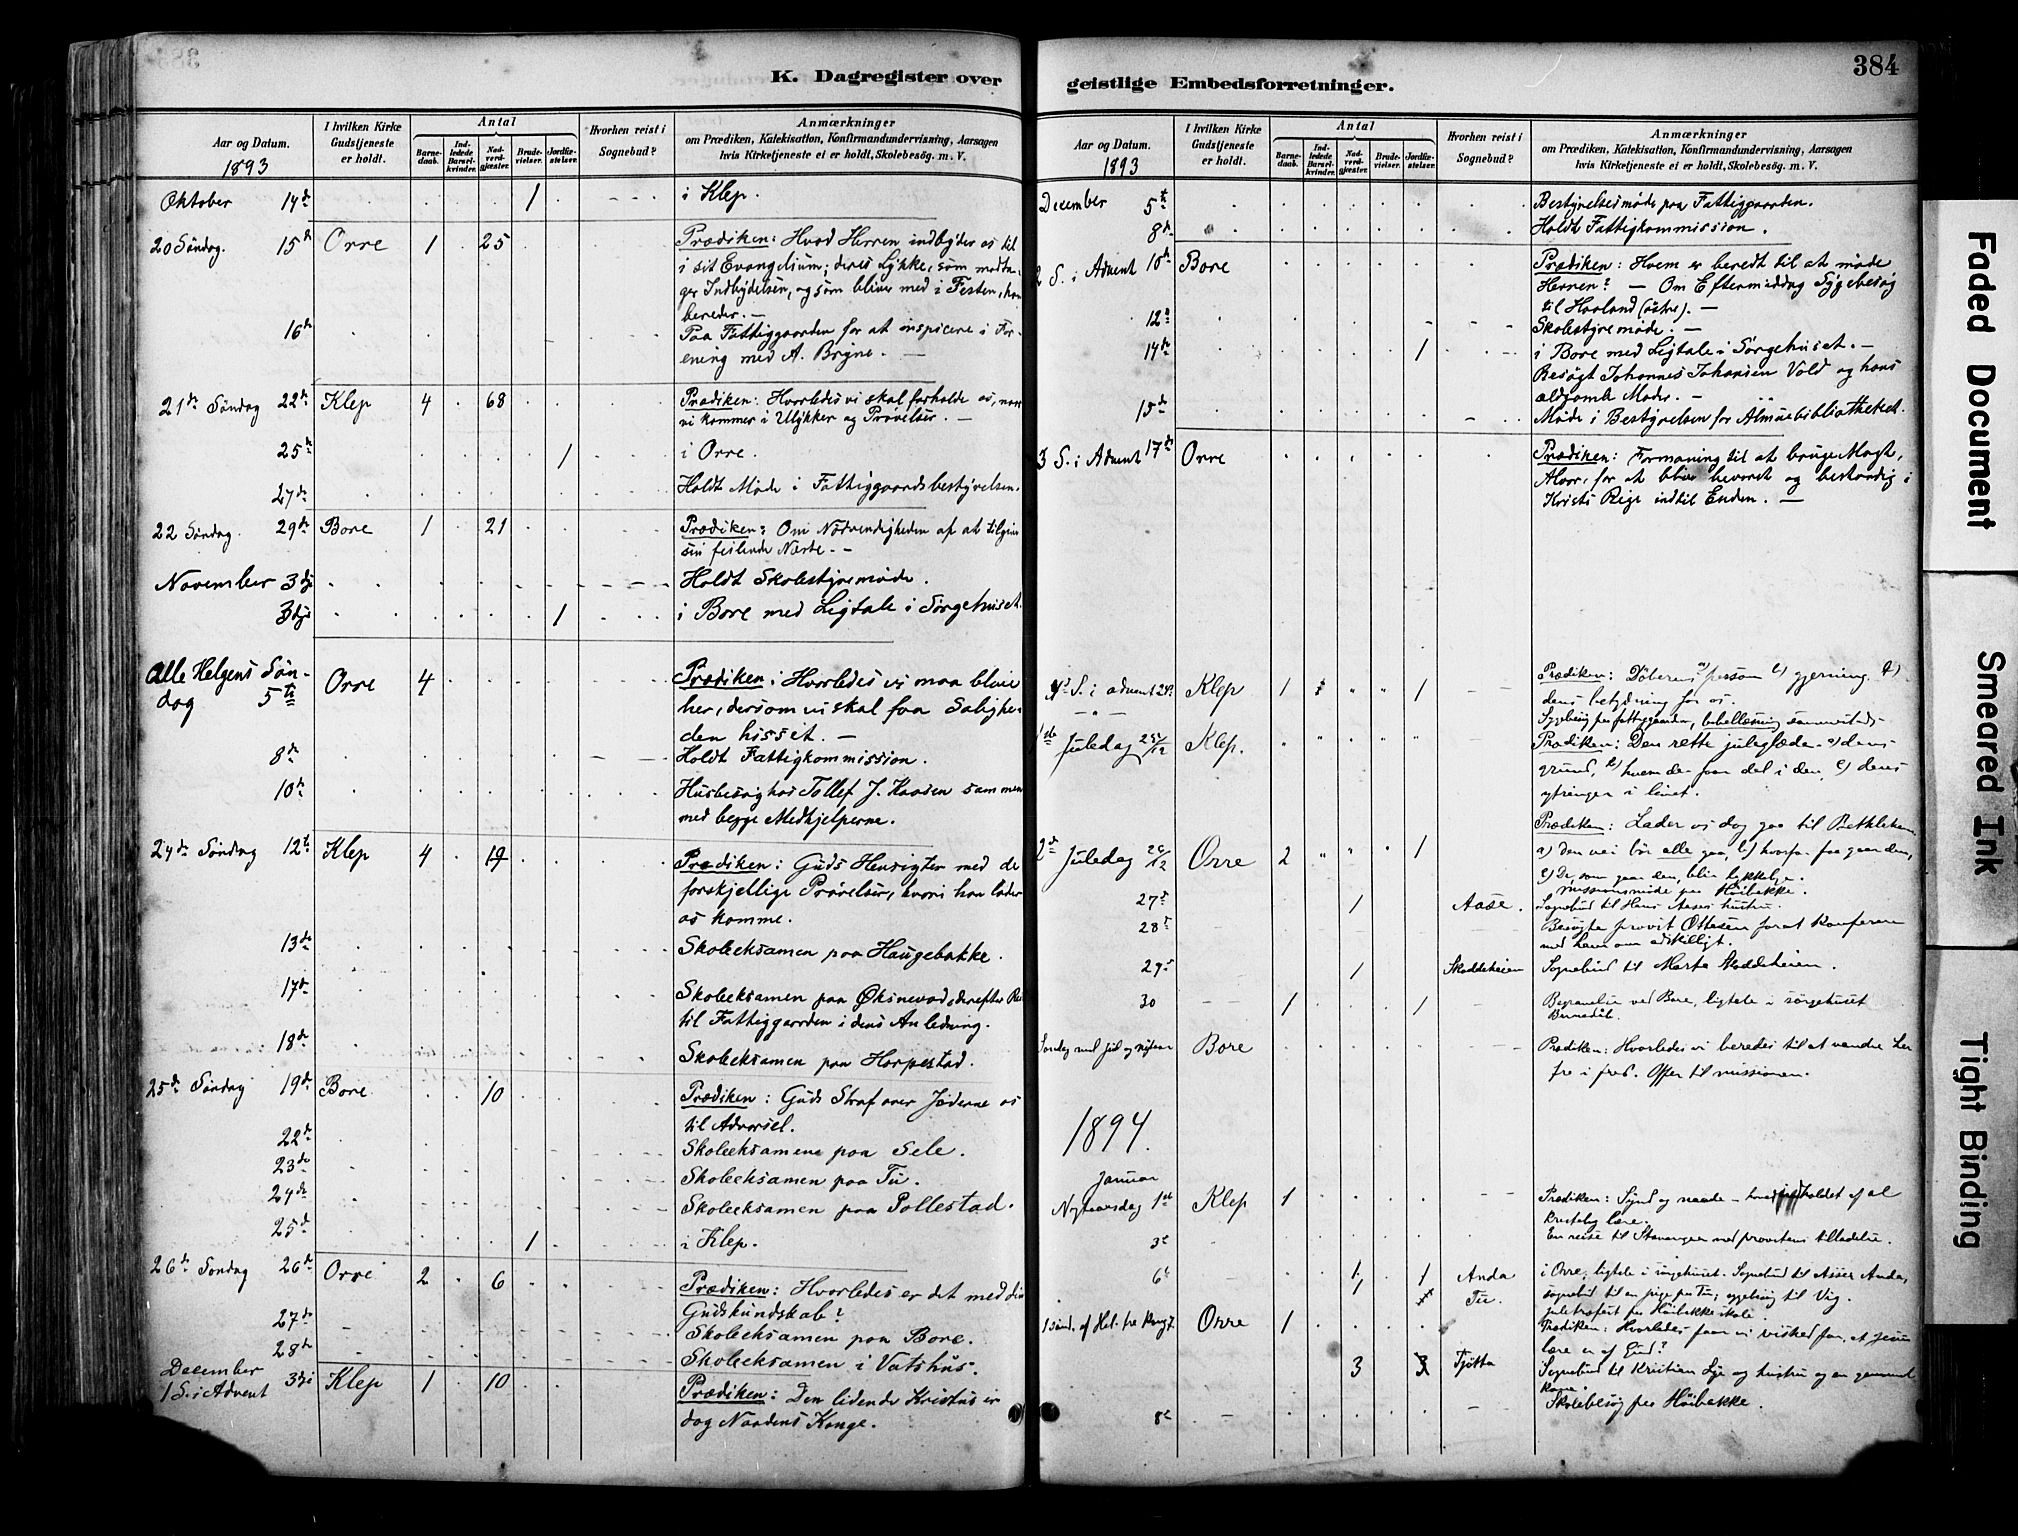 K. Dagregister over
Aar og Datum.
1893
I hvilken Kirke
Gudstjeneste
er holdt.
Antal
Barne-
daab.
Ind-
ledede
Barsel-
kvinder.
Nad-
verd-
gjæster.
Brude-
vielser.
Jordfæ-
stelser.
Hvorhen reist i
Sognebud?
Anmærkninger
om Prædiken, Katekisation, Konfirmandundervisning, Aarsagen
hvis Kirketjeneste ei er holdt, Skolebesög. m. V.
Oktober 14de 1 i Klep.
20 Søndag. 15de Orre 1 25 Prædiken: Hvad Herren indbyder os til
i sit Evangelium; deres Lykke, som modta-
ger Indbydelsen, og som bliver med i Festen, han
bereder. —
16de Paa Fattiggaarden for at inspicere i For-
ening med A. Bryne. —
21de Søndag 22de Klep 4 68 Prædiken: Hvorledes vi skal forholde os, naar
vi kommer i Ulykker og Prøvelser. —
25de 1 i Orre.
27de Holdt Møde i Fattiggaardsbestyrelsen.
22 Søndag. 29de Bore 1 21 Prædiken: Om Nødvendigheden af at tilgive
sin feilende Næste. —
November 3dje Holdt Skolestyremøde.
3dje 1 i Bore med Ligtale i Sørgehuset.
Alle Helgens Søn-
dag 5te Orre 4 Prædiken: Hvorledes vi maa blive
her, dersom vi skal faa Salighe-
den hisset. —
8de Holdt Fattigkommission.
10de Husbesøg hos Tollef J. Kaasen sammen
med begge Medhjelperne.
24de Søndag 12te Klep 4 19 Prædiken: Guds Hensigter med de
forskjellige Prøvelser, hvori han lader
os komme.
13de Skoleeksamen paa Haugebakke.
17de Skoleeksamen paa Øksnevad, derefter
til Fattiggaarden i dens Anledning.
18de Skoleeksamen paa Horpestad.
25de Søndag 19de Bore 10 Prædiken: Guds Straf over Jøderne os
til Advarsel.
22de Skoleeksamen paa Sele.
23de Skoleeksamen paa Tu.
24de Skoleeksamen paa Pollestad.
25de 1 i Klep.
26de Søndag 26de Orre 2 6 Prædiken: Hvorledes er det med din
Gudskundskab?
27de Skoleeksamen paa Bore.
28de Skoleeksamen i Vatshus.
December
1 S. i Advent 3dje Klep 1 10 Prædiken: Den lidende Kristus er
dog Naadens Konge.
geistlige Embedsforretninger.
384
Aar og Datum.
1893
I hvilken Kirke
Gudstjeneste
er holdt.
Antal
Barne-
daab.
Ind-
ledede
Barsel-
kvinder.
Nad-
verd-
gjæster.
Brude-
vielser.
Jordfæ-
stelser.
Hvorhen reist i
Sognebud?
Anmærkninger
om Prædiken, Katekisation, Konfirmandundervisning, Aarsagen
hvis Kirketjeneste ei er holdt, Skolebesög. m. V.
December 5te Bestyrelsesmøde paa Fattiggaarden.
8de Holdt Fattigkommission.
2 S. i Advent 10de Bore Prædiken: Hvem er beredt til at møde
Herren? — Om Eftermiddag Sygebesøg
til Haaland (østre). —
12te Skolestyremøde. —
14de 1 i Bore med Ligtale i Sørgehuset. —
Besøgt Johannes Johansen Vold og hans
aldgamle Moder. —
15de Møde i Bestyrelsen for Almuebibliotheket.
3 S. i Advent 17de Orre Prædiken: Formaning til at bruge Magt,
Alvor, for at blive bevaret og bestandig i
Kristi Rige indtil Enden. —
4de S. i advent 24de Klep 1 1 Prædiken: Døberens a) person b) gjerning c)
dens betydning for os.
Sygebesøg paa fattiggaarden, bibellæsning sammesteds.
1ste Juledag 25/12 Klep. Prædiken: Den rette juleglæde. a) dens
grund, b) hvem der faar del i den, c) dens
ytringer i livet.
2de Juledag 26/12 Orre 2 1 Prædiken: Lader os dog gaa til Bethlehem
a) Den vei bør alle gaa, b) hvorfor faa gaar den,
c) De, som gaar den, blir lykkelige.
missionsmøde paa Høibakke.
27de 1 Aase. Sognebud til Hans Aases hustru.
28de Besøgte provst Ottesen forat konferere
med ham om adskilligt.
29de 1 Skaddeheien Sognebud til Marta Skaddeheien.
30 1 1 Begravelse ved Bore, ligtale i sørgehuset
Barnedåb.
Søndag mel jul og nytaar Bore Prædiken: Hvorledes vi beredes til at vandre her
fra i fred. Offer til missionen.
1894.
Januar
Nytaarsdag 1ste Klep 1 Prædiken: Synd og naade — hovedindholdet af al
kristelig lære.
3e En reise til Stavanger med provstens tilladelse.
6te 1 1 Anda i Orre, ligtale i sørgehuset. Sognebud til Asser Anda,
1 Tu. sognebud til en pige paa Tu; sygebesøg til Vig.
juletræfest paa Høibakke skole.
1 sønd. af Hel. tre Kong. 7. Orre 1 Prædiken: Hvorledes faar vi visshed for, at Jesu
lære er af Gud?
3 Tjøtta Sognebud til Kristian Lye og hustru og en gammel
kone.
8de Skolebesøg paa Høibakke.
Faded Document
Smeared Ink
Tight Binding